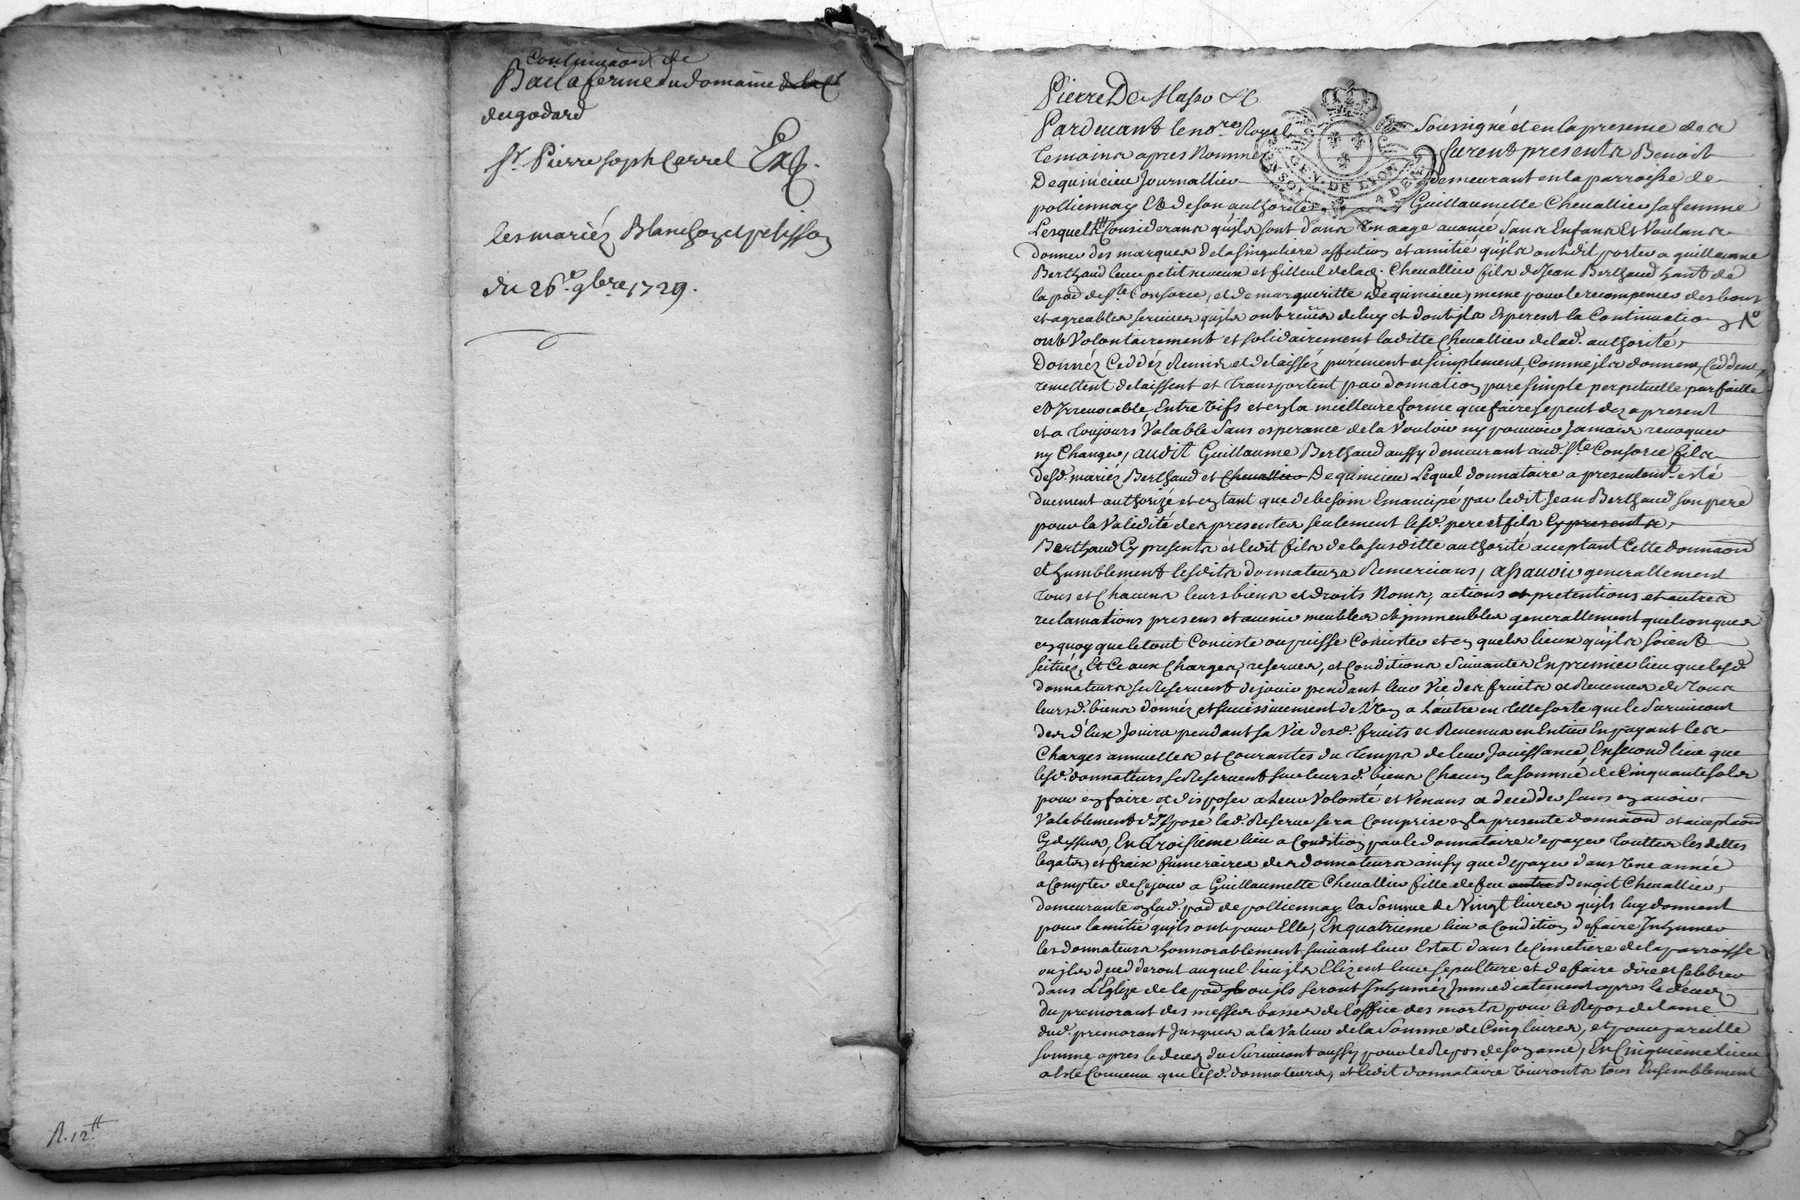 Continuaon de
Bail a ferme du domaine de la
du godard
Sr. Pierre Joseph Carrel Exp.
les mariéz Blanchon et pelisson
du 26e. 9bre. 1729.
R. 12tt
Pierre De Masso &c
GEN. DE LYON
Pardevant le nore. Royal Soussigné et en la presence des
temoins apres Nommez furent presents Benoist
Dequincieu Journallier demeurant en la parroisse de
polliennay Et de son authorité Guillaumette Chevallier sa femme
Lesquels Considerans qu'ils sont dans Un aage avancé sans Enfans Et Voulans
donner des marques de la singuliere affection et amitié qu'ils ont dit porter a guillaume
Berthaud leur petit neveux et filleul de lad. Chevallier fils de Jean Berthaud hant. de
la pad de Ste. Consorce, et de margueritte Dequincieu, meme pour le recompenser des bons
et agreables services qu'ils ont reçus de luy et dont ils esperent la Continuation
ont Volontairement et solidairement laditte Chevallier de lad. authorité
Donnéz Ceddéz Remis et delaissés purement et simplement, Comme ils donnent, Ceddent,
remettent delaissent et transportent par donnation pure simple perpetuelle parfaitte
et Irrevocable, Entre vifs et en la meilleure forme que faire se peut dez a present
et a toujours Valable Sans esperance de la Vouloir ny pouvoir Jamais revoquer
ny Changer, audit Guillaume Berthaud aussy demeurant aud. Ste Consorce fils
desd. mariéz Berthaud et Chevallier Dequincieu Lequel donnataire a presentemt. esté
duement authorizé et en tant que de besoin Emancipé par ledit Jean Berthaud son pere
pour la Validité des presentes seulement lesd. pere et fils Cy presents
Berthaud Cy presents et ledit fils de la susditte authorité acceptant Cette donnaon
et humblement lesdits donnateurs Remercians, assavoir generallement
tous et Chacuns leurs biens et droits Noms, actions et pretentions et autres
reclamations presens et avenir meubles et immeubles generallement quelconques
en quoy que le tout Conciste ou puisse Concister et en quels lieux qu'ils soient
scitués, Et Ce aux Charges, reserves, et Conditions Suivantes En premier lieu que lesd.
donnateurs se Reservent de jouir pendant leur Vie des fruits et Revenus de tous
leursd. biens donnéz et successivement de l'Un a L'autre en telle sorte que le Survivant
des deux Jouira pendant sa Vie desd. fruits et Revenus en Entier En payant les
Charges annuelles et Courantes du temps de leur Jouissance, En second lieu que
lesd. donnateurs se Reservent sur leursd. biens Chacun la somme de Cinquante sols
pour en faire et disposer a Leur Volonté et Venans a decedder sans en avoir
Valablement disposé, lad. Reserve sera Comprise en la presente donnaon et acceptaon
Cy dessus, En troisieme lieu a Condition par le donnataire de payer touttes les dettes
legats, et fraix funeraires des donnateurs ainsy que de payer dans Une année
a Compter de Ce jour a Guillaumette Chevallier fille de feu autre Benoit Chevallier,
demeurante en lad. pad de polliennay la Somme de Vingt livres qu'ils luy donnent
pour lamitié qu'ils ont pour Elle, En quatrieme lieu a Condition de faire Inhumer
les donnateurs honnorablement suivant leur Estat dans le Cimetiere de la parroisse
ou ils decedderont auquel lieu ils Elizent leur sepulture et de faire dire et Celebrer
dans l'Eglize de la pad ou ils seront Inhumés Immediatement apres le deces
du premourant des messes basses de l'office des morts pour le Repos de lame
dud. premourant Jusques a la Valeur de la Somme de Cinq livres, et pour pareille
somme apres le deces du Survivant aussy pour le Repos de son ame, En Cinquieme lieu
a esté Convenu que lesd. donnateurs, et ledit donnataire Vivronts tous Ensemblement